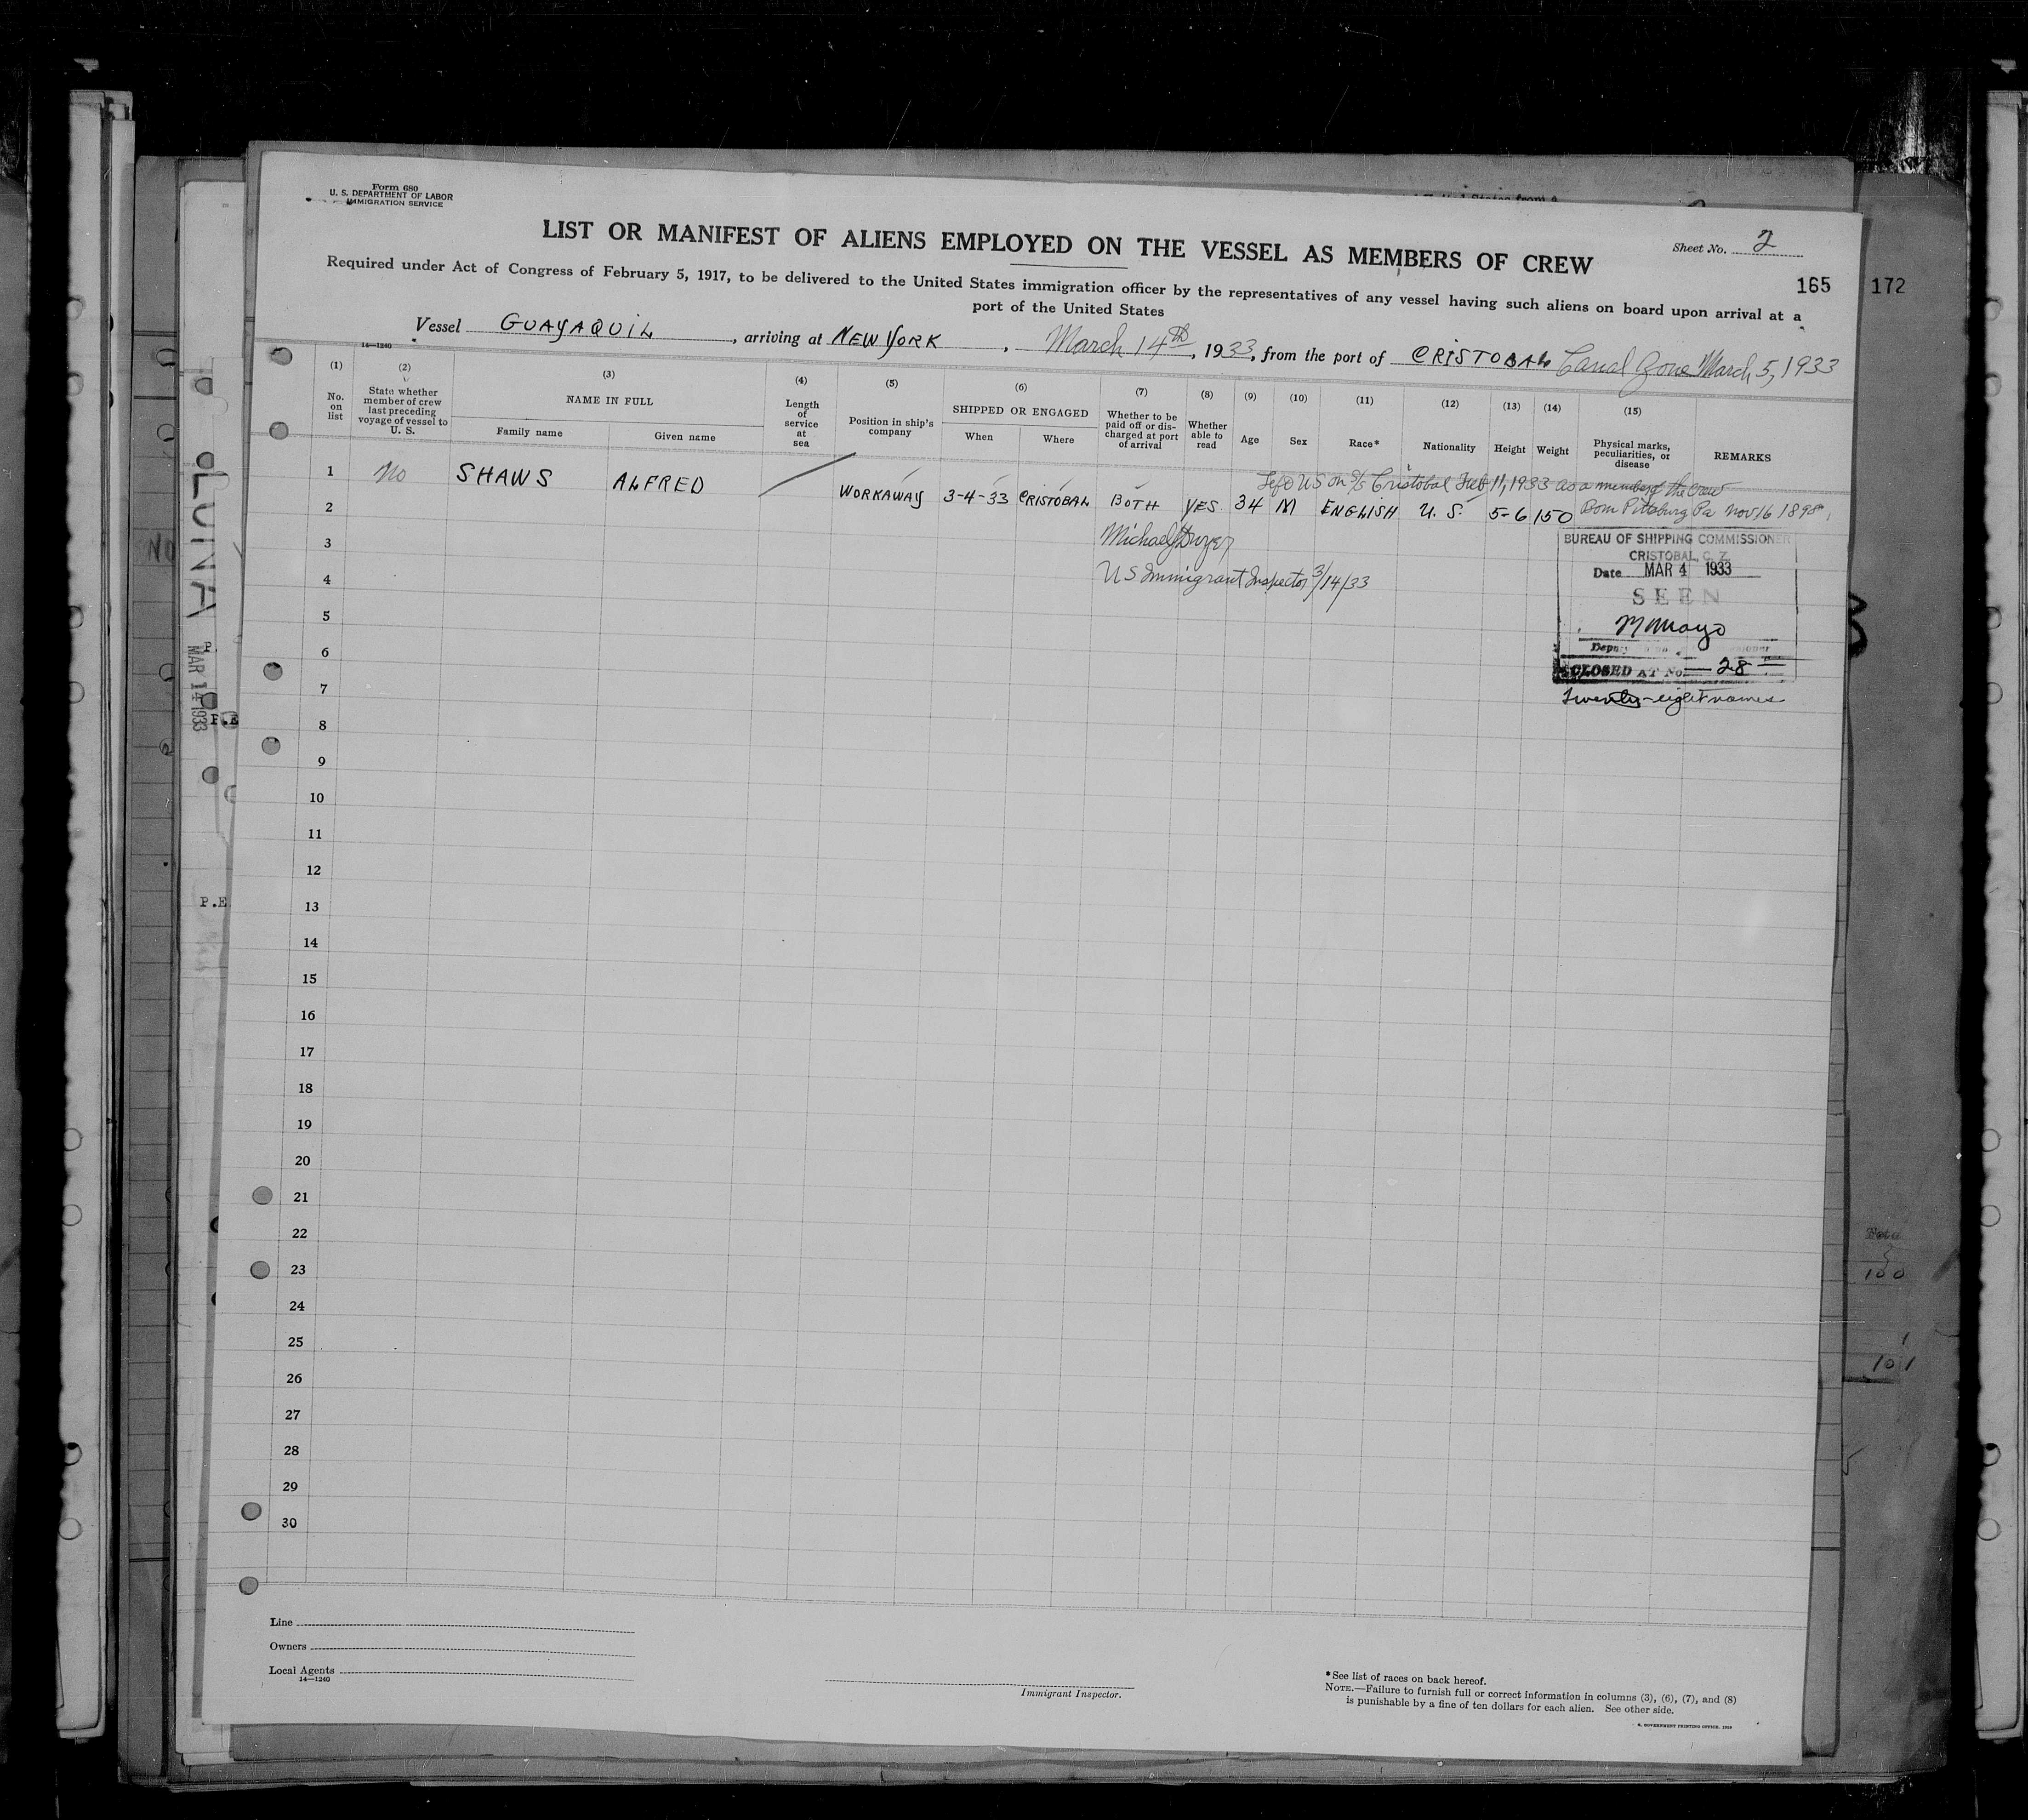 Form 680
U. S. DEPARTMENT OF LABOR
IMMIGRATION SERVICE
LIST OR MANIFEST OF ALIENS EMPLOYED ON THE VESSEL AS MEMBERS OF CREW
Sheet No. 2
Required under Act of Congress of February 5, 1917, to be delivered to the United States immigration officer by the representatives of any vessel having such aliens on board upon arrival at a
port of the United States
165
172
Vessel GUAYAQUIL, arriving at NEW YORK, March 14th, 1933, from the port of CRISTOBAL Canal Zone March 5, 1933
14—1240
(1) No. on list
(2) State whether member of crew last preceding voyage of vessel to U. S.
(3) NAME IN FULL
Family name
Given name
(4) Length of service at sea
(5) Position in ship's company
(6) SHIPPED OR ENGAGED
When
Where
(7) Whether to be paid off or discharged at port of arrival
(8) Whether able to read
(9) Age
(10) Sex
(11) Race*
(12) Nationality
(13) Height
(14) Weight
(15) Physical marks, peculiarities, or disease
REMARKS
Left US on S/S Cristobal Feb 11, 1933 as a member of the crew
1 No SHAWS ALFRED WORKAWAY 3-4-33 CRISTOBAL BOTH YES 34 M ENGLISH U. S. 5-6 150 Born Pittsburg Pa Nov 16 1898
2
3
Michael J Dwyer
4
US Immigrant Inspector 3/14/33
BUREAU OF SHIPPING COMMISSIONER
CRISTOBAL, C. Z.
Date MAR 4 1933
SEEN
CLOSED AT No. 28
Twenty-eight names
5
6
7
8
9
10
11
12
13
14
15
16
17
18
19
20
21
22
23
24
25
26
27
28
29
30
Line
Owners
Local Agents
14—1240
Immigrant Inspector.
*See list of races on back hereof.
NOTE.—Failure to furnish full or correct information in columns (3), (6), (7), and (8)
is punishable by a fine of ten dollars for each alien. See other side.
LUNA
MAR 14 1933
P.E
P.E
NO
100
1
101